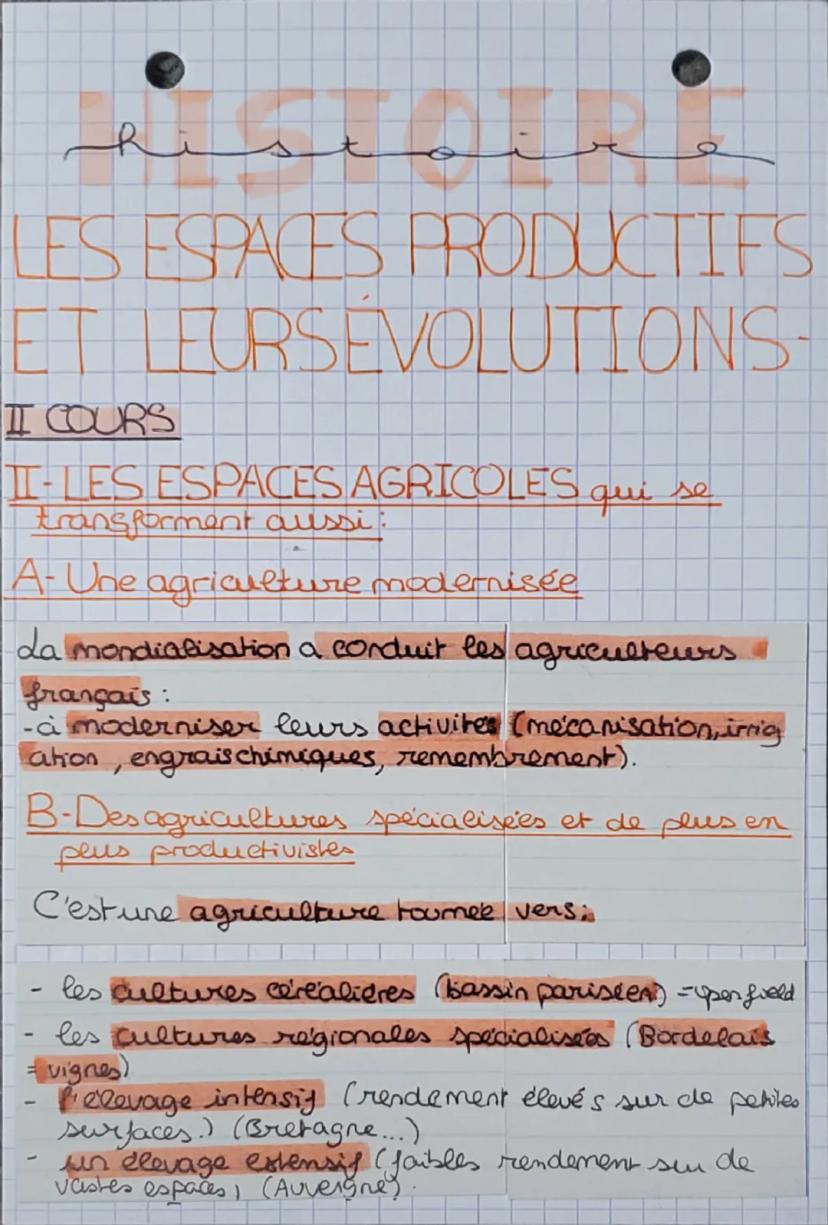 HISTOIRE
histoire
LES ESPACES PRODUCTIFS
ET LEURS ÉVOLUTIONS-
II COURS
II-LES ESPACES AGRICOLES qui se
transforment aussi:
A-Une agriculture modernisée
La mondialisation a conduit les agriculteurs
français:
-à moderniser leurs activités (mécanisation, irrig
ation, engrais chimiques, remembrement).
B-Des agricultures spécialisées et de plus en
plus productivistes
C'est une agriculture tournée vers:
- les cultures céréalières (bassin parisien) = open field
- les cultures régionales spécialisées (Bordelais
= vignes)
- l'élevage intensif (rendement élevés sur de petites
surfaces.) (Bretagne...)
- un élevage extensif (faibles rendement sur de
vastes espaces) (Auvergne).